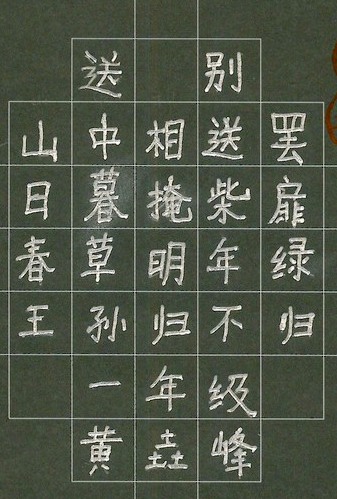 送别
山中相送罢
日暮掩柴扉
春草明年绿
王孙归不归
一年级
黄垚峰